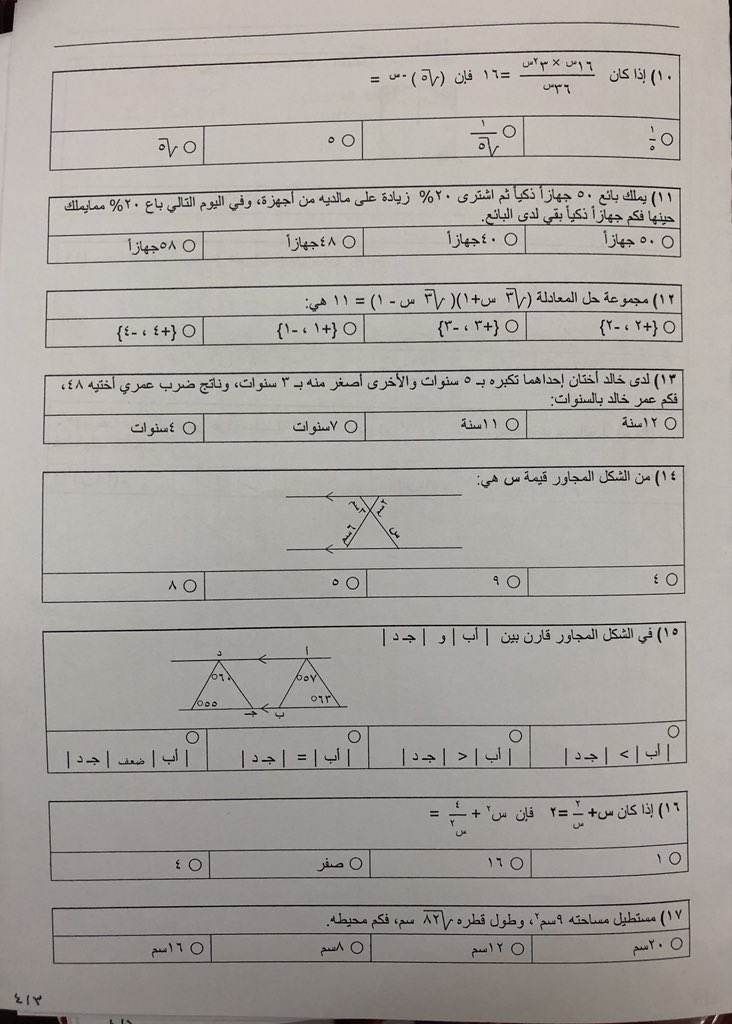 ١٠) إذا كان ١٦س × ٣٢س / ٣٦س = ١٦ فإن (√٥)-س =
١/٥
١/√٥
٥
√٥
١١) يملك بائع ٥٠ جهازاً ذكياً ثم اشترى ٢٠% زيادة على مالديه من أجهزة، وفي اليوم التالي باع ٢٠% ممايملك
حينها فكم جهازاً ذكياً بقي لدى البائع.
٥٠ جهازاً
٤٠جهازاً
٤٨جهازاً
٥٨جهازاً
١٢) مجموعة حل المعادلة (√٣ س+١)(√٣ س - ١) = ١١ هي:
{+٢ ، -٢}
{+٣ ، -٣}
{+١ ، -١}
{+٤ ، -٤}
١٣) لدى خالد أختان إحداهما تكبره بـ ٥ سنوات والأخرى أصغر منه بـ ٣ سنوات، وناتج ضرب عمري أختيه ٤٨،
فكم عمر خالد بالسنوات:
١٢سنة
١١سنة
٧سنوات
٤سنوات
١٤) من الشكل المجاور قيمة س هي:
٣سم
٢سم
٦سم
س
٤
٩
٥
٨
١٥) في الشكل المجاور قارن بين |أب| و |جـ د|
أ
د
٥٧°
٦٠°
٦٣°
٥٥°
ب
جـ
|أب| > |جـ د|
|أب| < |جـ د|
|أب| = |جـ د|
|أب| ضعف |جـ د|
١٦) إذا كان س+ ٢/س =٢ فإن س٢ + ٤/س٢ =
١
١٦
صفر
٤
١٧) مستطيل مساحته ٩سم٢، وطول قطره √٨٢ سم، فكم محيطه.
٢٠سم
١٢سم
٨سم
١٦سم
٤/٣